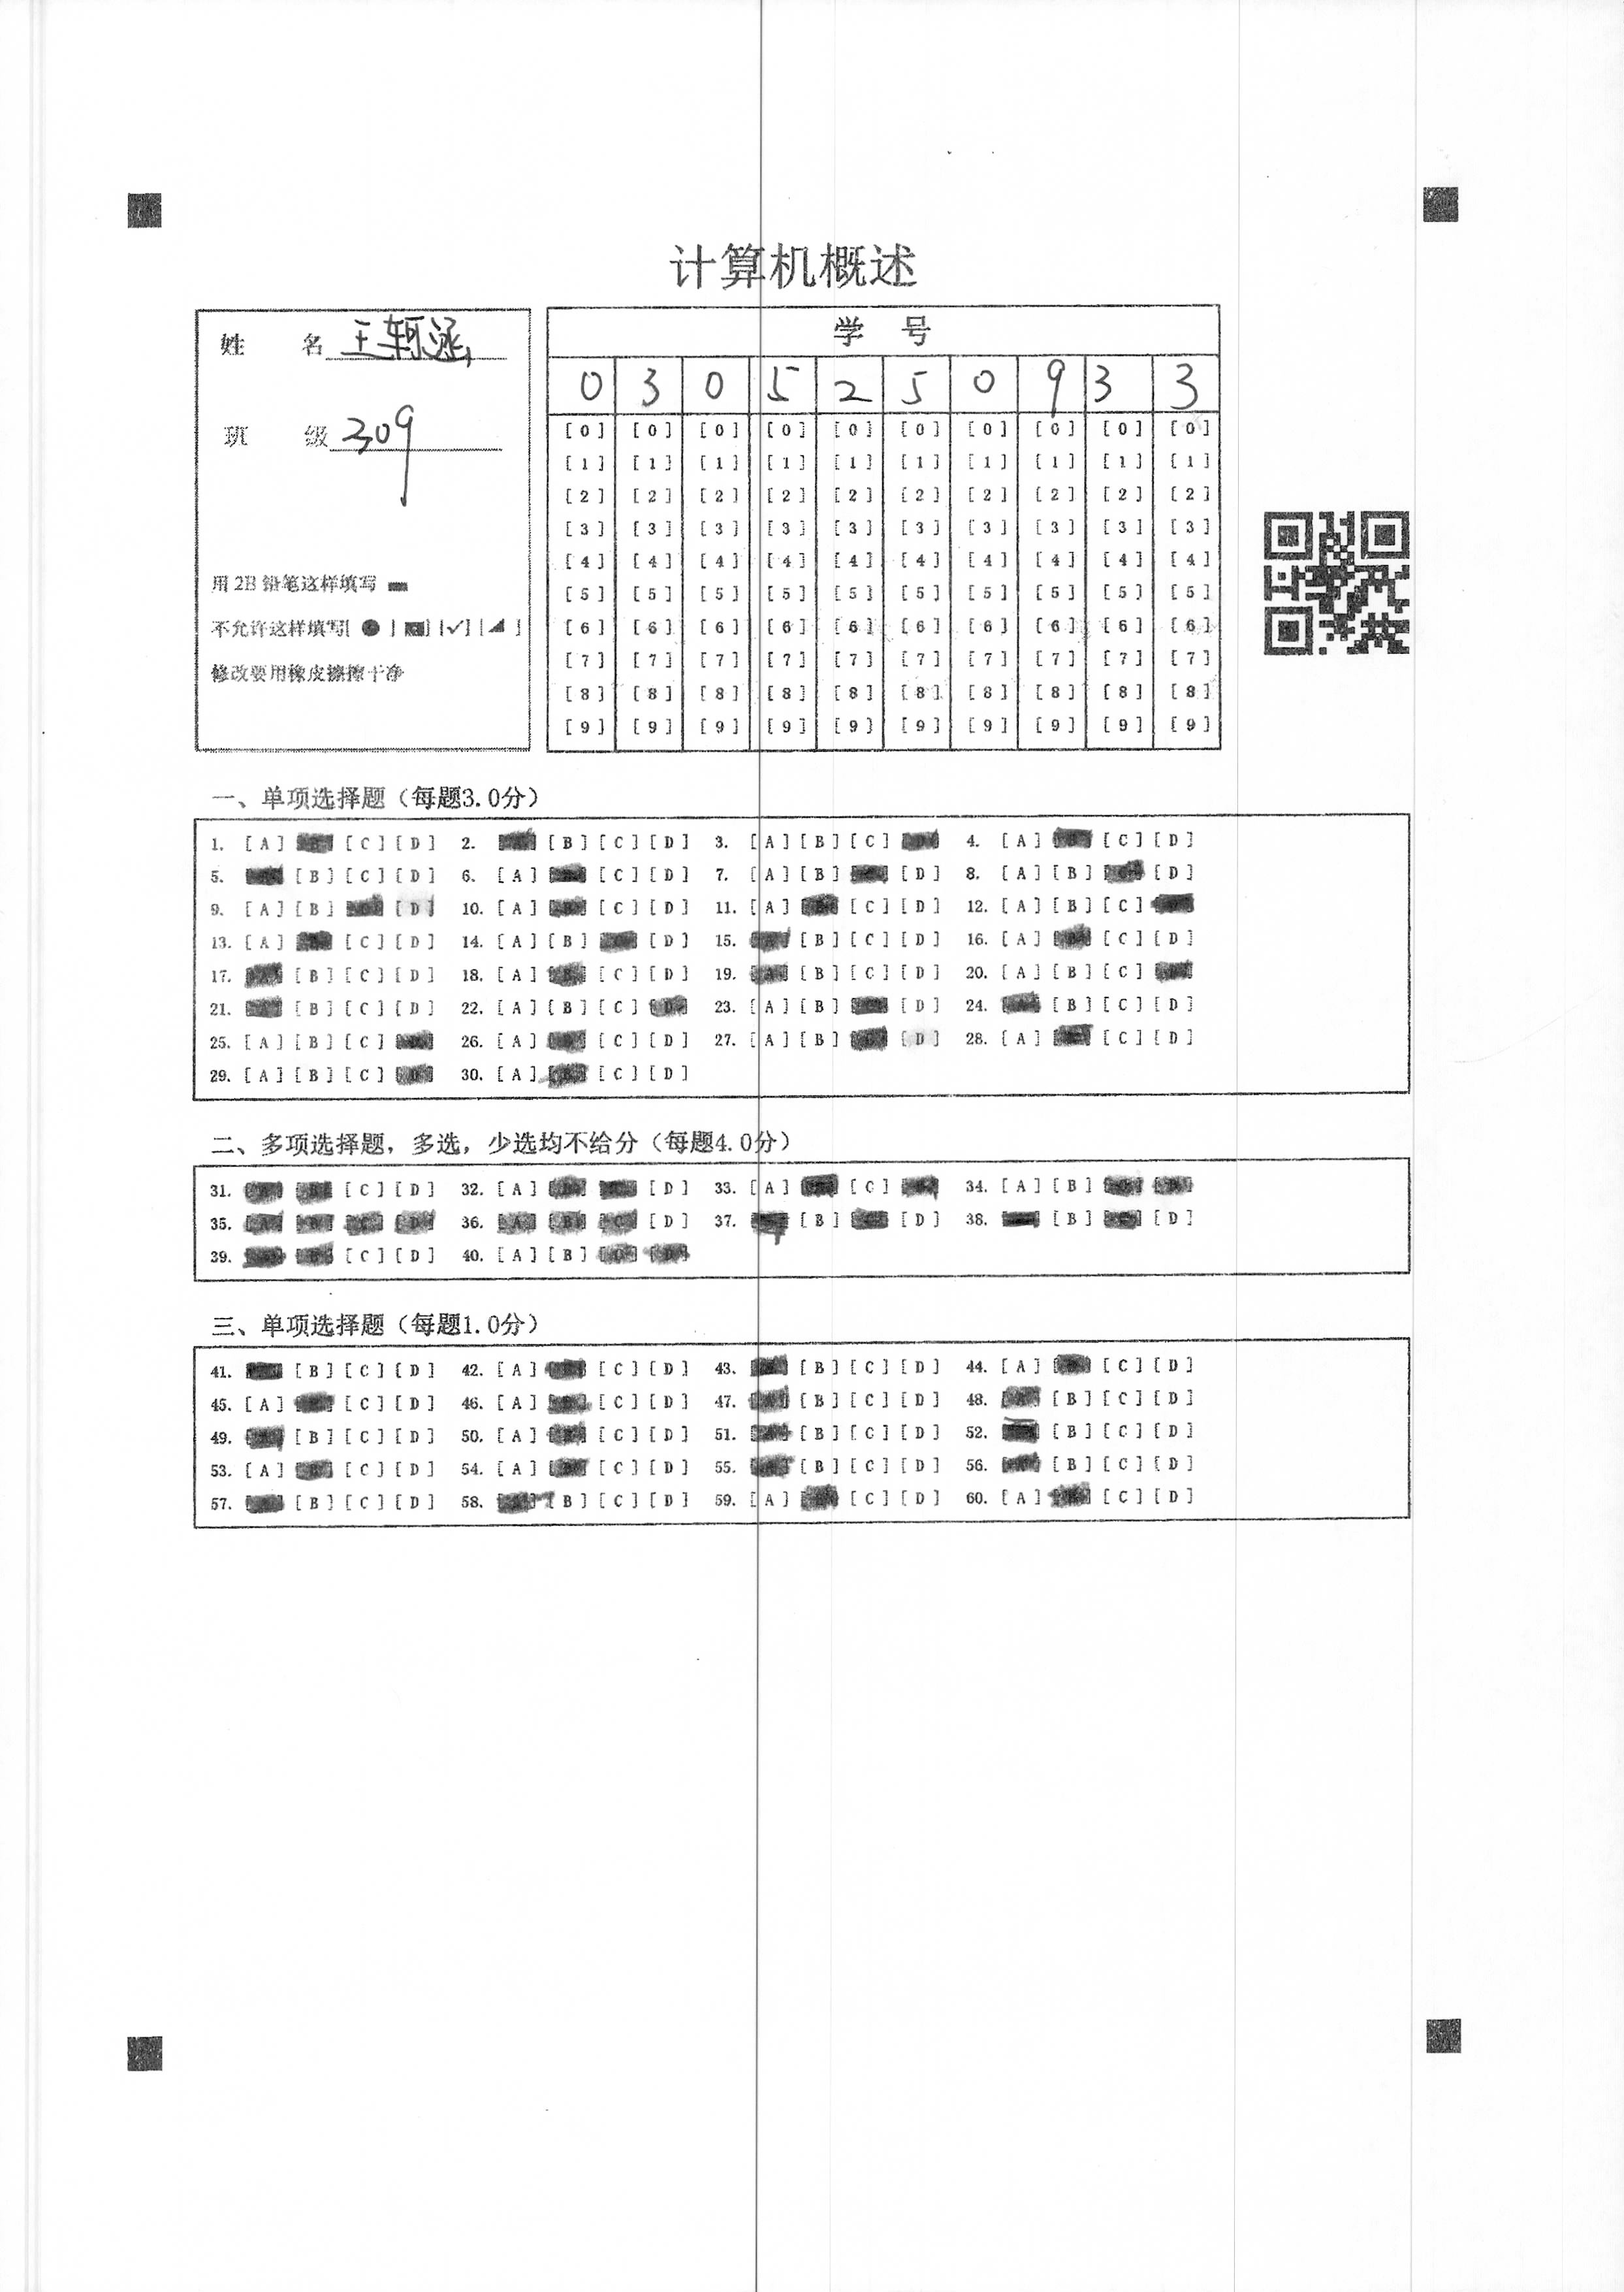 计算机概述
姓 名 王轲涵
班 级 309
用 2B 铅笔这样填写
不允许这样填写[ ● ] [ ] [✓] [◢ ]
修改要用橡皮擦擦干净
学 号
0 3 0 5 2 5 0 9 3 3
[0] [0] [0] [0] [0] [0] [0] [0] [0] [0]
[1] [1] [1] [1] [1] [1] [1] [1] [1] [1]
[2] [2] [2] [2] [2] [2] [2] [2] [2] [2]
[3] [3] [3] [3] [3] [3] [3] [3] [3] [3]
[4] [4] [4] [4] [4] [4] [4] [4] [4] [4]
[5] [5] [5] [5] [5] [5] [5] [5] [5] [5]
[6] [6] [6] [6] [6] [6] [6] [6] [6] [6]
[7] [7] [7] [7] [7] [7] [7] [7] [7] [7]
[8] [8] [8] [8] [8] [8] [8] [8] [8] [8]
[9] [9] [9] [9] [9] [9] [9] [9] [9] [9]
一、单项选择题（每题3.0分）
1. [A] [C] [D] 2. [B] [C] [D] 3. [A] [B] [C] 4. [A] [C] [D]
5. [B] [C] [D] 6. [A] [C] [D] 7. [A] [B] [D] 8. [A] [B] [D]
9. [A] [B] [D] 10. [A] [C] [D] 11. [A] [C] [D] 12. [A] [B] [C]
13. [A] [C] [D] 14. [A] [B] [D] 15. [B] [C] [D] 16. [A] [C] [D]
17. [B] [C] [D] 18. [A] [C] [D] 19. [B] [C] [D] 20. [A] [B] [C]
21. [B] [C] [D] 22. [A] [B] [C] 23. [A] [B] [D] 24. [B] [C] [D]
25. [A] [B] [C] 26. [A] [C] [D] 27. [A] [B] [D] 28. [A] [C] [D]
29. [A] [B] [C] 30. [A] [C] [D]
二、多项选择题，多选，少选均不给分（每题4.0分）
31. [C] [D] 32. [A] [D] 33. [A] [C] 34. [A] [B]
35. 36. [D] 37. [B] [D] 38. [B] [D]
39. [C] [D] 40. [A] [B]
三、单项选择题（每题1.0分）
41. [B] [C] [D] 42. [A] [C] [D] 43. [B] [C] [D] 44. [A] [C] [D]
45. [A] [C] [D] 46. [A] [C] [D] 47. [B] [C] [D] 48. [B] [C] [D]
49. [B] [C] [D] 50. [A] [C] [D] 51. [B] [C] [D] 52. [B] [C] [D]
53. [A] [C] [D] 54. [A] [C] [D] 55. [B] [C] [D] 56. [B] [C] [D]
57. [B] [C] [D] 58. [B] [C] [D] 59. [A] [C] [D] 60. [A] [C] [D]